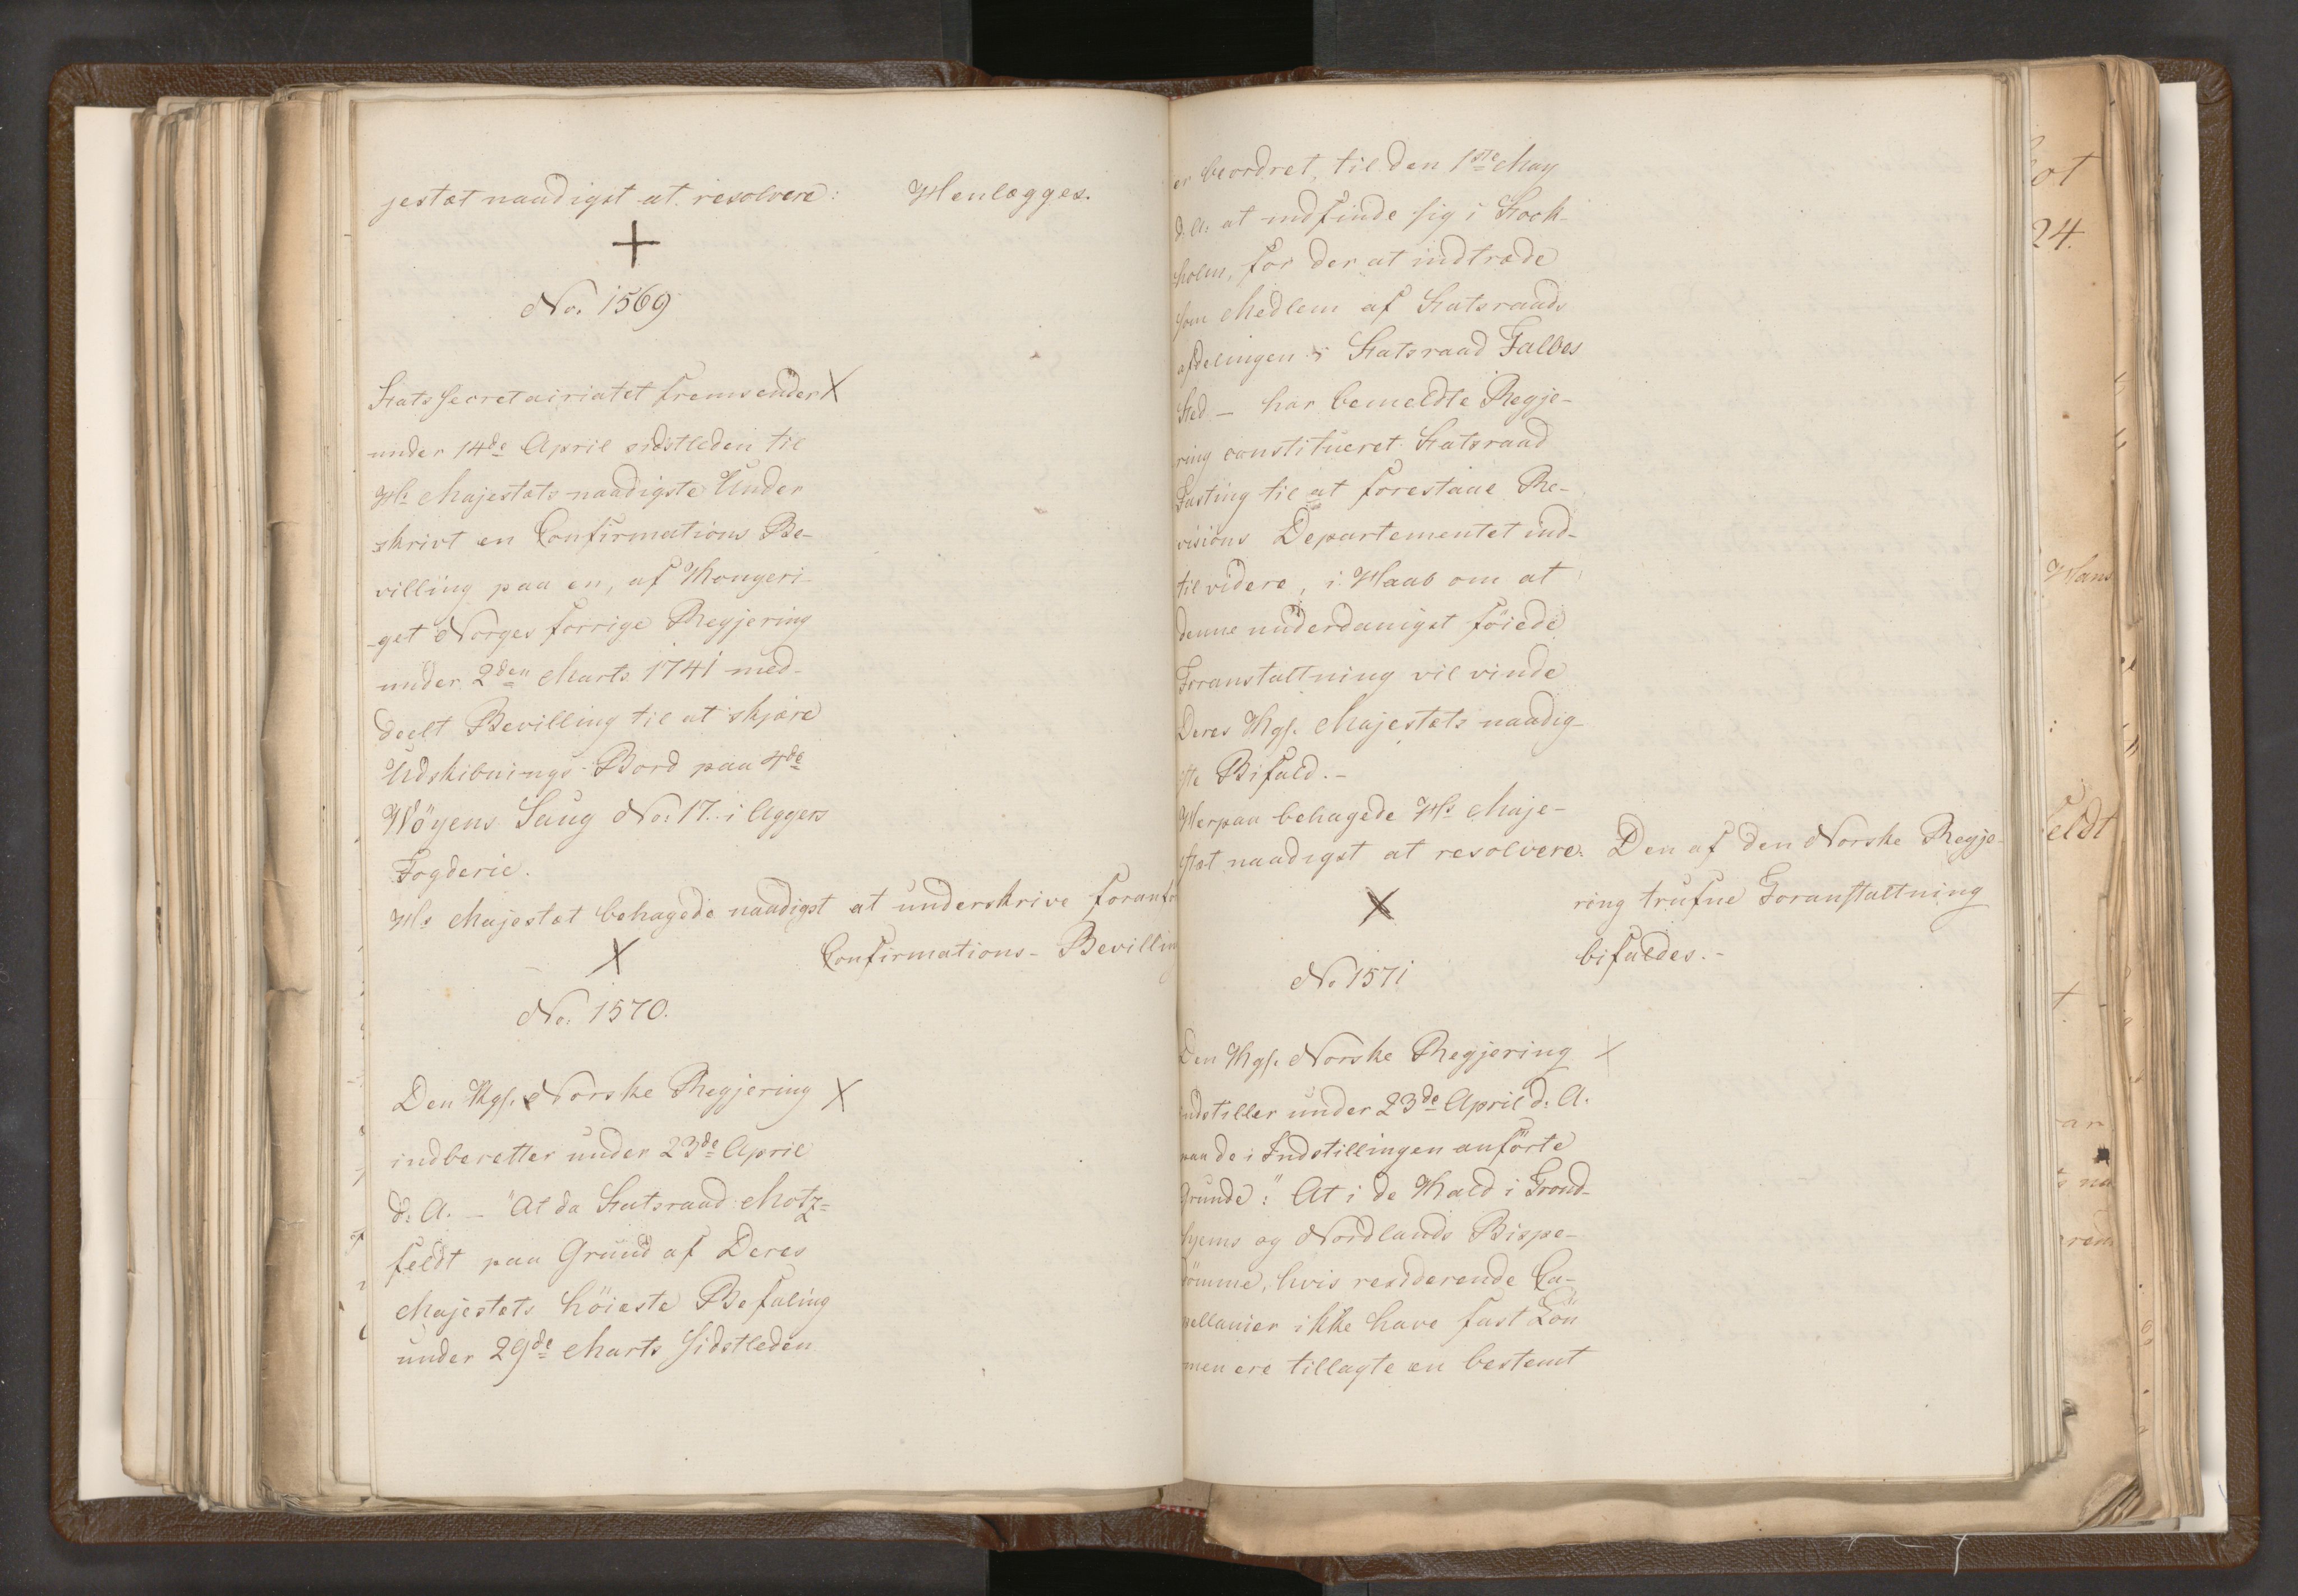 jestæt naadigst at resolvere: Henlægges.
+
No. 1569
Stats Secretairiatet fremsender X
under 14de April sidstleden til
Hs Majestæts naadigste Under
skrivt en Confirmations Be-
villing paa en, af Kongeri-
get Norges forrige Regjering
under 2den Marts 1741 med-
deelt Bevilling til at skjære
Udskibnings-Bord paa 4de
Wöyens Saug No: 17. i Aggers
Fogderie.
Hs Majestæt behagede naadigst at underskrive
X Confirmations-Bevilling
No. 1570.
Den Kgl. Norske Regjering X
indberetter under 23de April
d: A. - "At da Statsraad Motz=
feldt paa Grund af Deres
Majestæts höieste Befaling
under 29de Marts sidstleden
er beordret, til den 1ste May
d. A. at indfinde sig i Stock-
holm, for der at indtræde
som Medlem af Statsraads
afdelingen i Statsraad Falbes
Sted - har bemeldte Regje-
ring constitueret Statsraad
Fasting til at forestaae Re-
visions Departementet ind-
til videre, i Haab om at
denne underdanigst föiede
Foranstaltning vil vinde
Deres Kgl. Majestæts naadig-
ste Bifald.-
Herpaa behagede Hs Maje-
stæt naadigst at resolvere: Den af den Norske Regje-
ring trufne Foranstaltning
X
bifaldes.-
No 1571
Den Kgl. Norske Regjering X
indstiller under 23de April d: A.
paa de i Indstillingen anförte
Grunde: "At i de Kald i Trond-
hjems og Nordlands Bispe-
dömme, hvis residerende Ca-
pellanier ikke have fast Lön
men ere tillagte en bestemt
24.
feldt